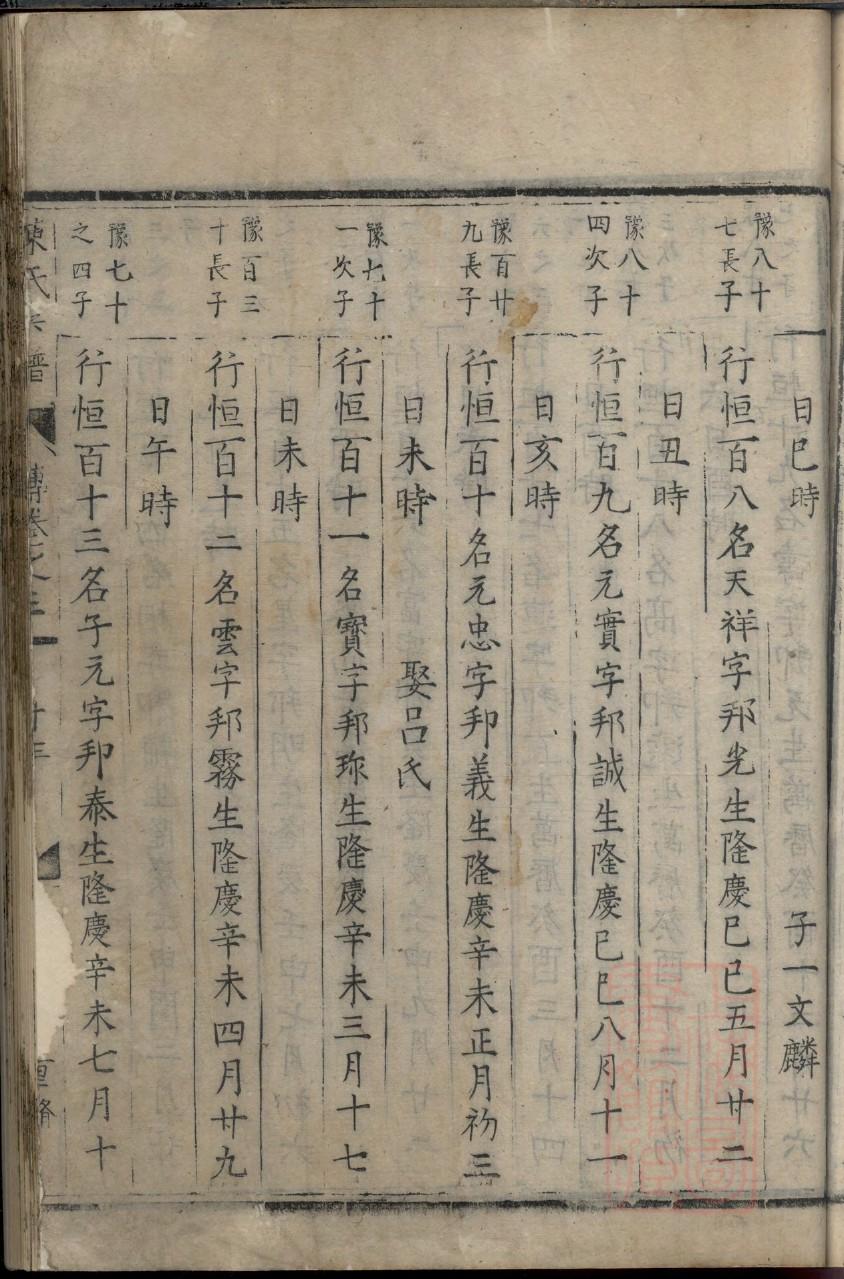 日巳時　子一文麟
豫八十
七長子
行恒百八名天祥字邦光生隆慶己巳五月廿二
日丑時
豫八十
四次子
行恒百九名元實字邦誠生隆慶己巳八月十一
日亥時
豫百廿
九長子
行恒百十名元忠字邦義生隆慶辛未正月初三
日未時　娶呂氏
豫九十
一次子
行恒百十一名寶字邦珎生隆慶辛未三月十七
日未時
豫百三
十長子
行恒百十二名雲字邦霧生隆慶辛未四月廿九
日午時
豫七十
之四子
行恒百十三名子元字邦泰生隆慶辛未七月十
陳氏宗譜　傳卷之　重脩